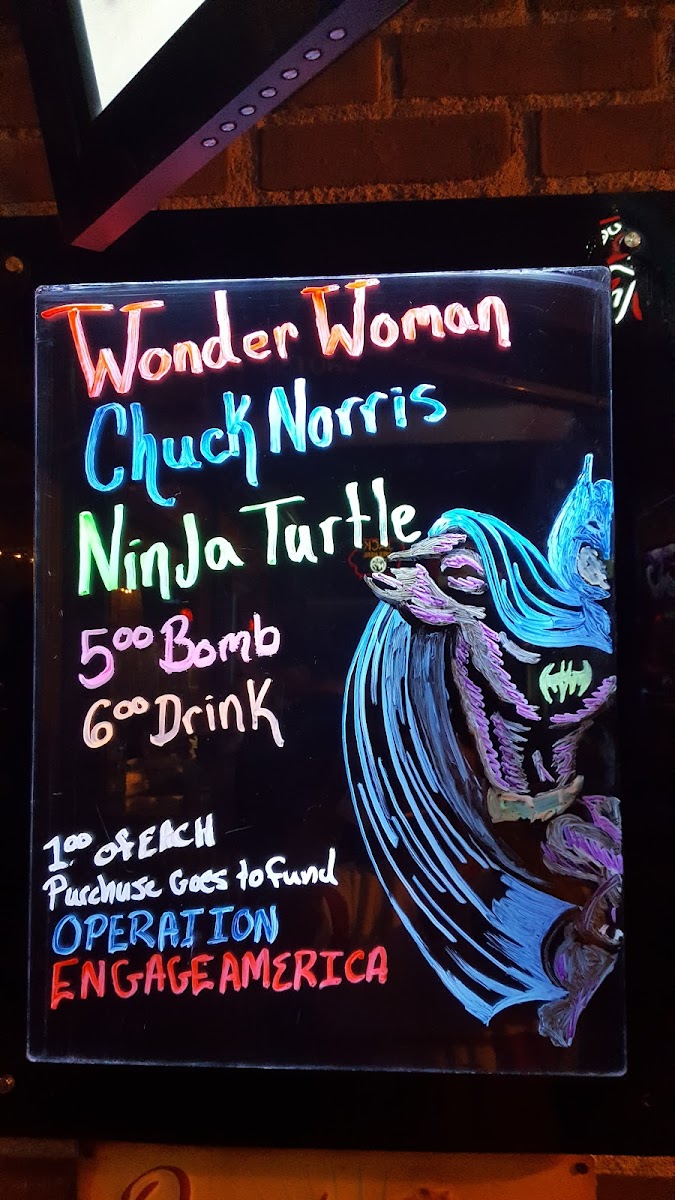 Wonder Woman
Chuck Norris
Ninja Turtle
5⁰⁰ Bomb
6⁰⁰ Drink
1⁰⁰ of EACH
Purchase Goes to fund
OPERATION
ENGAGE AMERICA